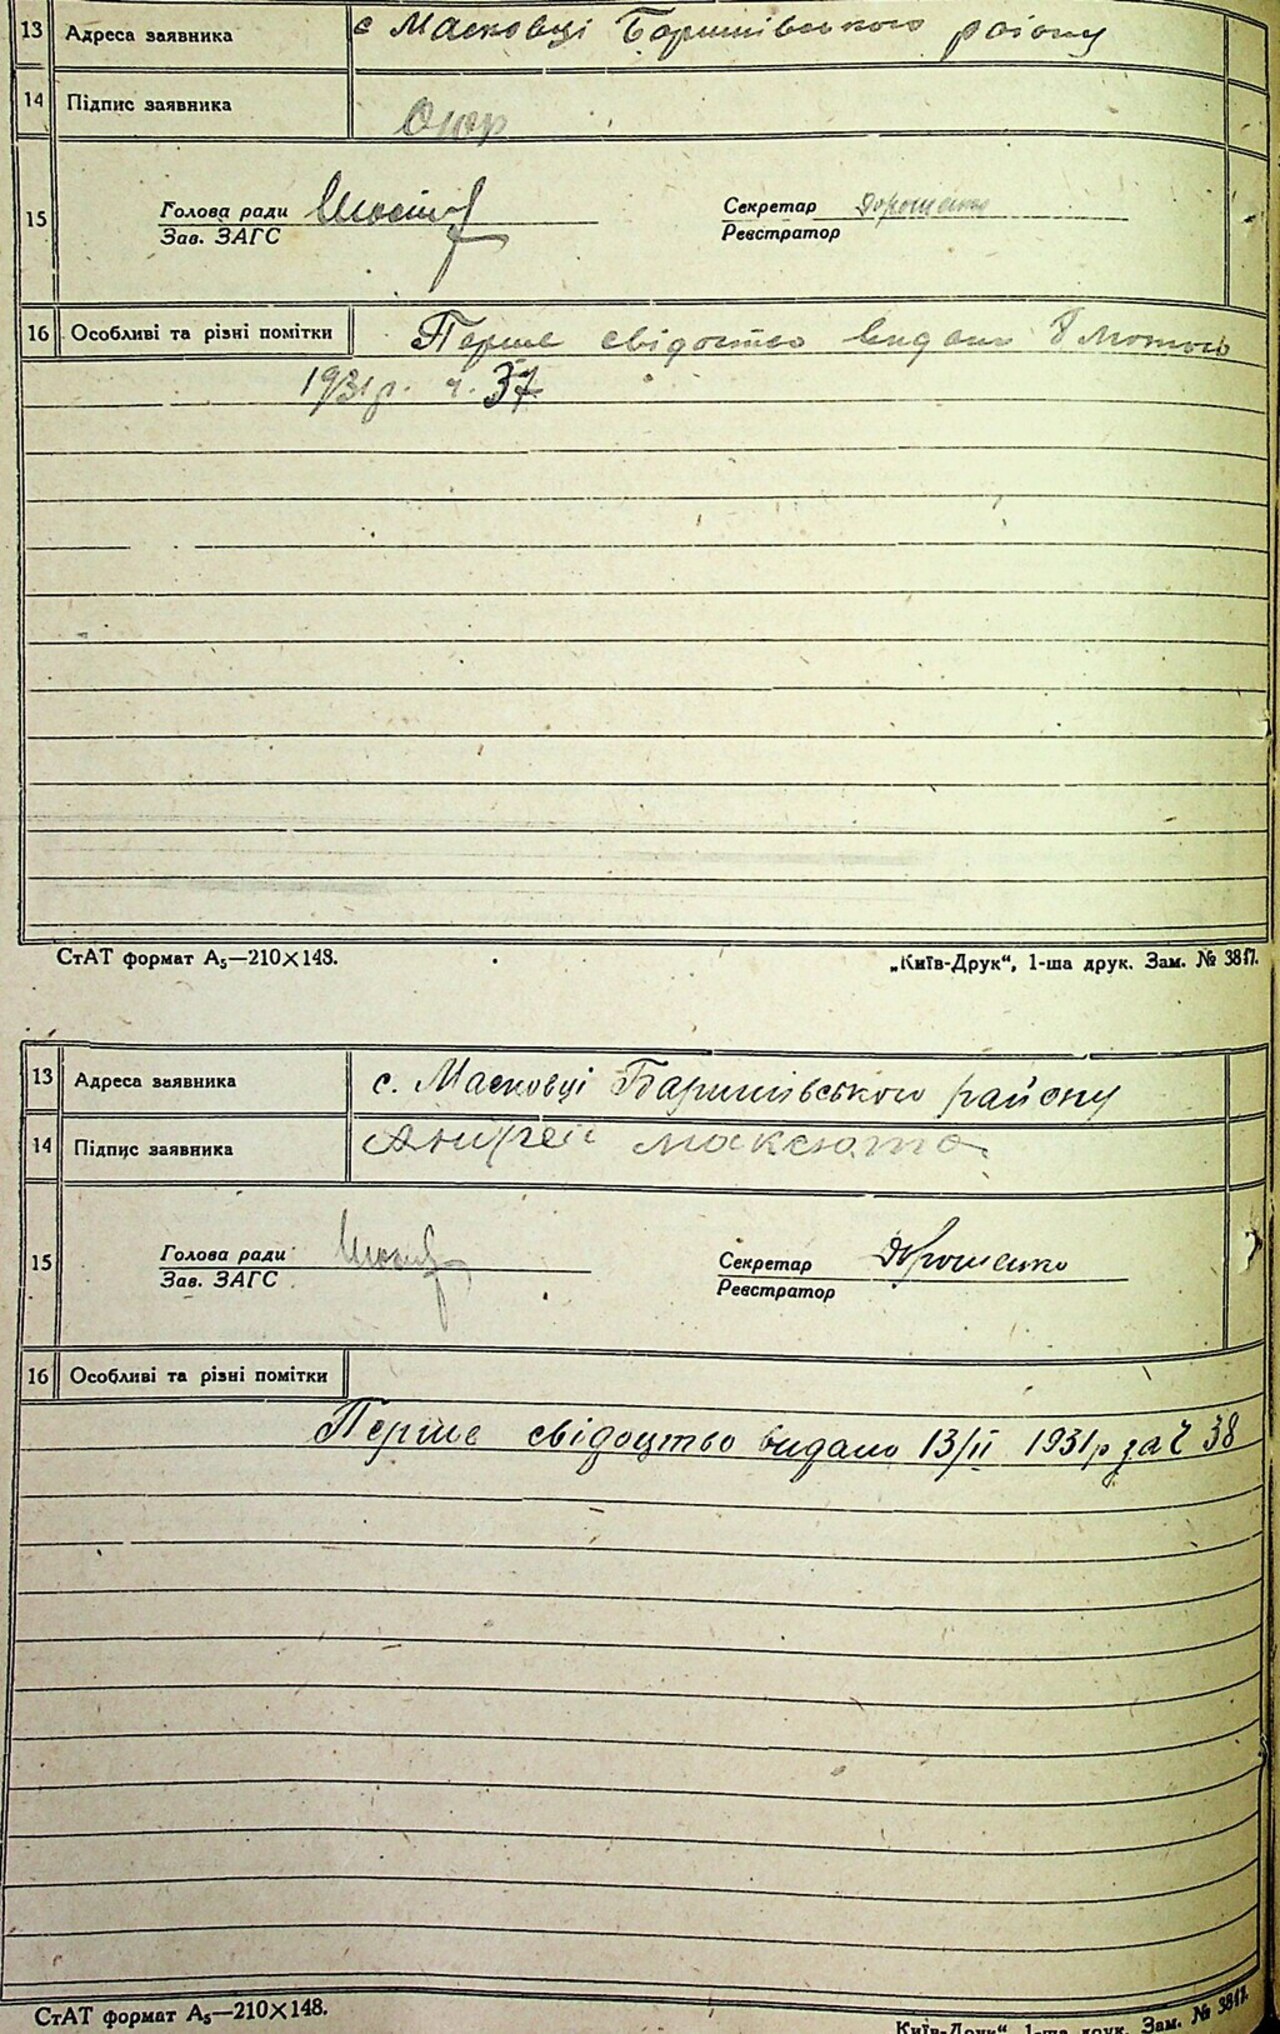 13 Адреса заявника с Масковці Баришівського району
14 Підпис заявника
15 Голова ради Секретар Дорошенко
Зав. ЗАГС Реєстратор
16 Особливі та різні помітки Перше свідоство видано 8 лютого
1931 р. ч. 37
СтАТ формат А₅—210×148. „Київ-Друк“, 1-ша друк. Зам. № 3817.
13 Адреса заявника с. Масковці Баришівського району
14 Підпис заявника Андрей Максюта
15 Голова ради Секретар Дорошенко
Зав. ЗАГС Реєстратор
16 Особливі та різні помітки
Перше свідоцтво видано 13/II 1931 р за Ч 38
СтАТ формат А₅—210×148. Київ-Друк“, 1-ша друк. Зам. № 3817.